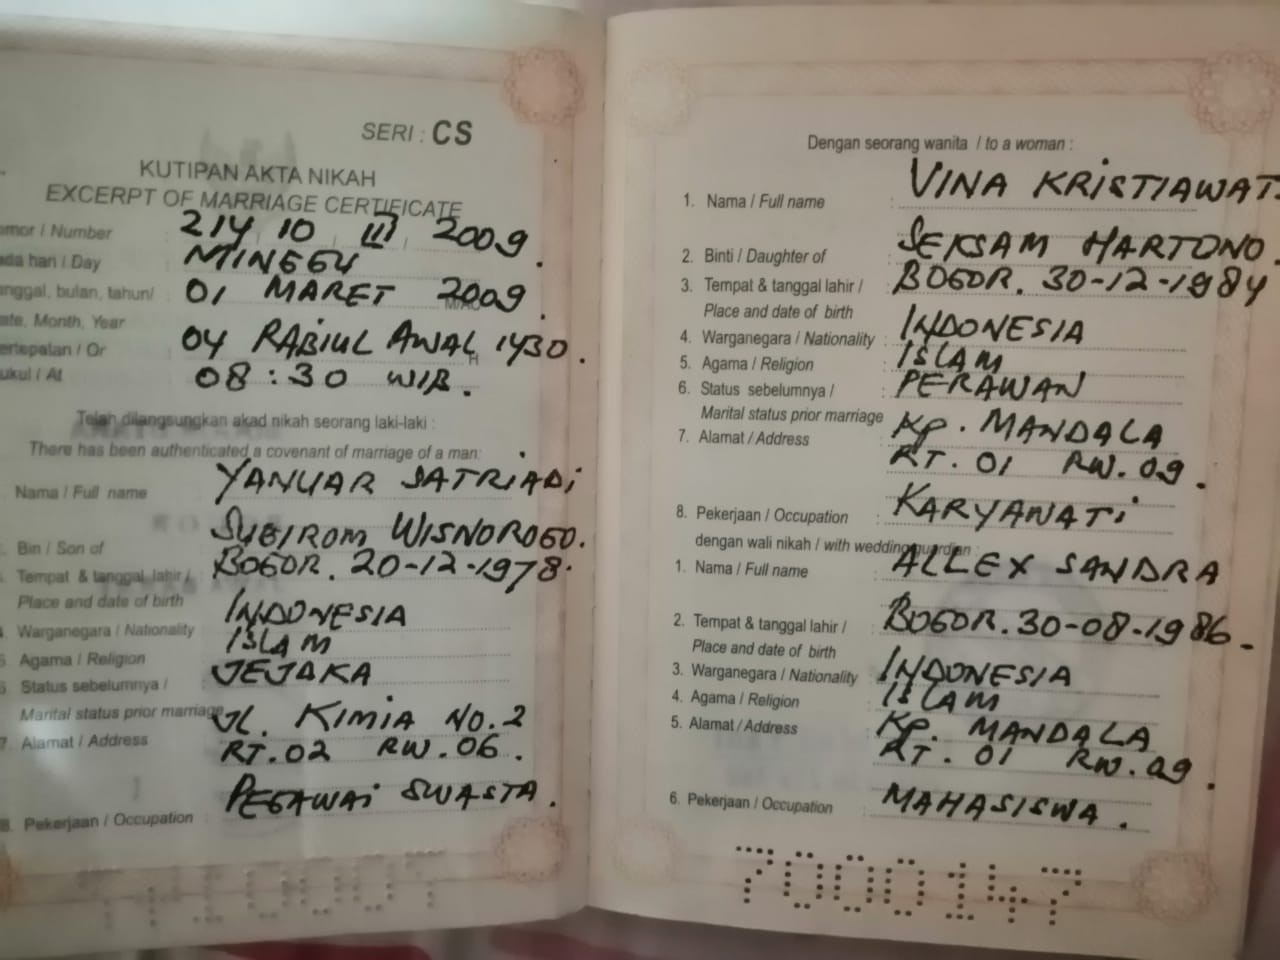 SERI : CS
KUTIPAN AKTA NIKAH
EXCERPT OF MARRIAGE CERTIFICATE
omor / Number : 214 10 III 2009
ada hari / Day : MINGGU .
anggal, bulan, tahun/ : 01 MARET 2009 .
ate, Month, Year
ertepatan / Or : 04 RABIUL AWAL 1430 . H
ukul / At : 08 : 30 WIB .
Telah dilangsungkan akad nikah seorang laki-laki :
There has been authenticated a covenant of marriage of a man:
Nama / Full name : YANUAR SATRIADI
Bin / Son of : SUGIROM WISNOROGO.
Tempat & tanggal lahir / : BOGOR. 20-12-1978.
Place and date of birth
Warganegara / Nationality : INDONESIA
Agama / Religion : ISLAM
Status sebelumnya / : JEJAKA
Marital status prior marriage
7. Alamat / Address : JL. KIMIA NO. 2
RT. 02 RW. 06 .
8. Pekerjaan / Occupation : PEGAWAI SWASTA .
Dengan seorang wanita / to a woman :
1. Nama / Full name : VINA KRISTIAWATI
2. Binti / Daughter of : SEKSAM HARTONO.
3. Tempat & tanggal lahir / : BOGOR. 30-12-1984
Place and date of birth
4. Warganegara / Nationality : INDONESIA
5. Agama / Religion : ISLAM
6. Status sebelumnya / : PERAWAN
Marital status prior marriage
7. Alamat / Address : KP. MANDALA
RT. 01 RW. 09 .
8. Pekerjaan / Occupation : KARYAWATI
dengan wali nikah / with wedding guardian :
1. Nama / Full name : ALLEX SANDRA
2. Tempat & tanggal lahir / : BOGOR. 30-08-1986.
Place and date of birth
3. Warganegara / Nationality : INDONESIA
4. Agama / Religion : ISLAM
5. Alamat / Address : KP. MANDALA
RT. 01 RW. 09 .
6. Pekerjaan / Occupation : MAHASISWA .
700147